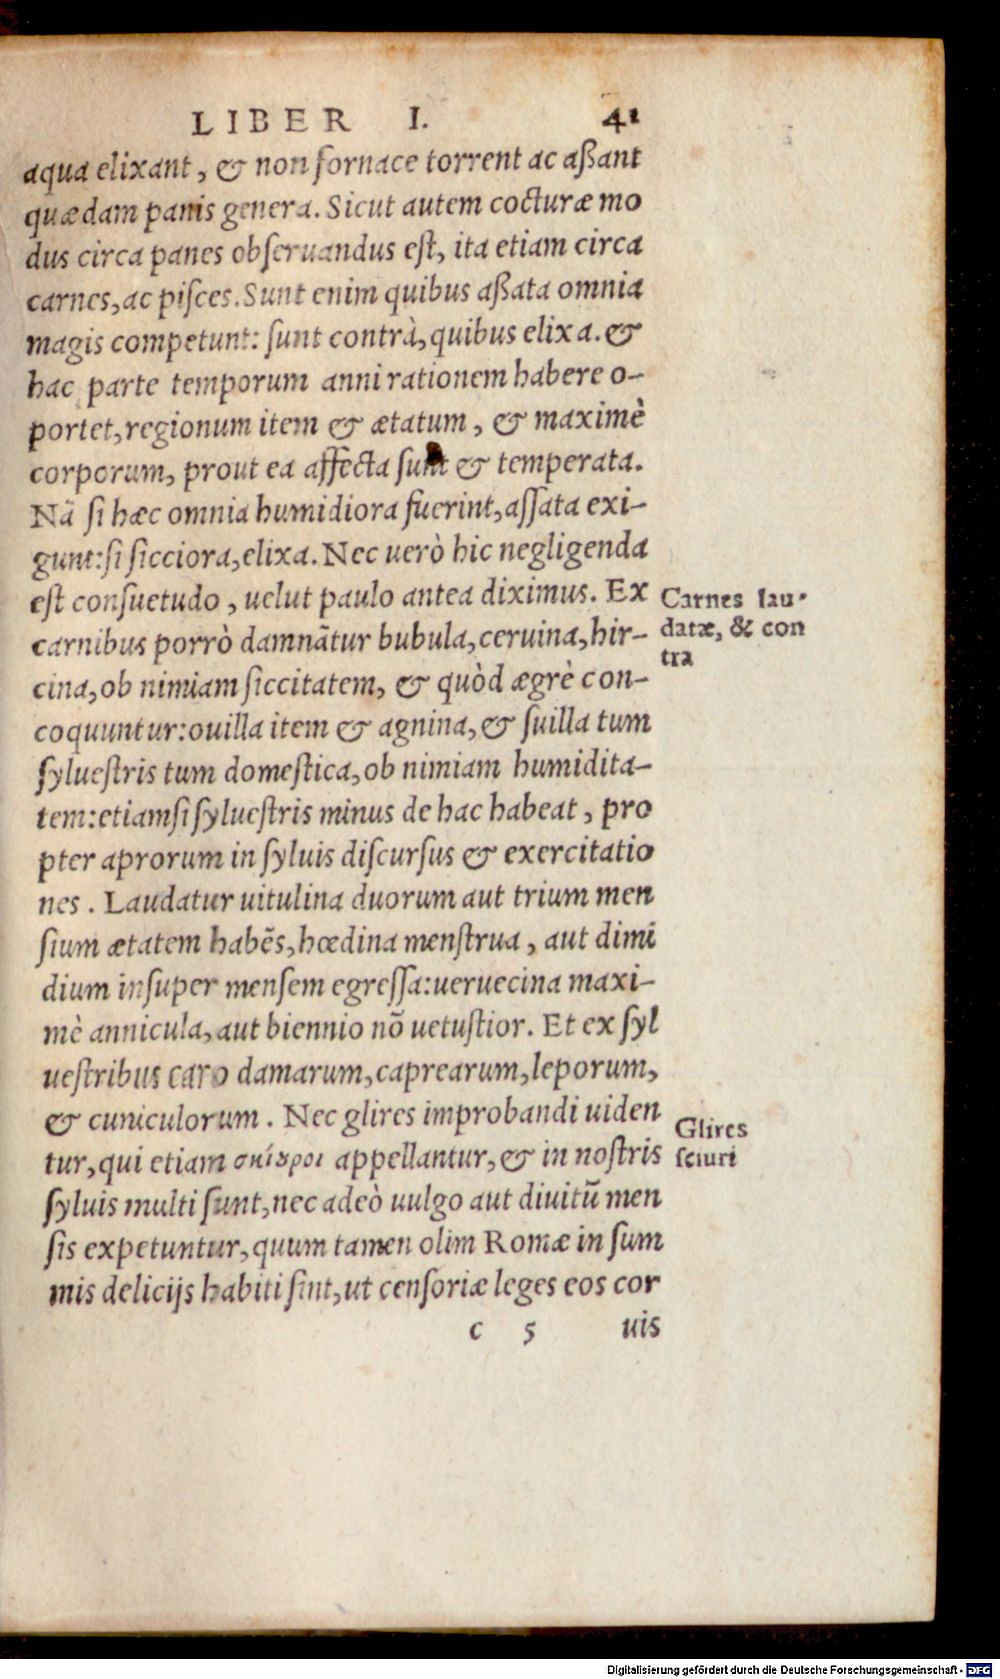 LIBER I. 41
aqua elixant, & non fornace torrent ac aßant
quædam panis genera. Sicut autem cocturæ mo
dus circa panes obseruandus est, ita etiam circa
carnes, ac pisces. Sunt enim quibus aßata omnia
magis competunt: sunt contrà, quibus elixa. &
hac parte temporum anni rationem habere o-
portet, regionum item & ætatum, & maximè
corporum, prout ea affecta sunt & temperata.
Nã si hæc omnia humidiora fuerint, assata exi-
gunt: si sicciora, elixa. Nec uerò hic negligenda
est consuetudo, uelut paulo antea diximus. Ex
Carnes lau-
datæ, & con
tra
carnibus porrò damnãtur bubula, ceruina, hir-
cina, ob nimiam siccitatem, & quòd ægrè con-
coquuntur: ouilla item & agnina, & suilla tum
syluestris tum domestica, ob nimiam humidita-
tem: etiamsi syluestris minus de hac habeat, pro
pter aprorum in syluis discursus & exercitatio
nes. Laudatur uitulina duorum aut trium men
sium ætatem habẽs, hœdina menstrua, aut dimi
dium insuper mensem egressa: ueruecina maxi-
mè annicula, aut biennio nõ uetustior. Et ex syl
uestribus caro damarum, caprearum, leporum,
& cuniculorum. Nec glires improbandi uiden
Glires
sciuri
tur, qui etiam σκίȣροι appellantur, & in nostris
syluis multi sunt, nec adeò uulgo aut diuitũ men
sis expetuntur, quum tamen olim Romæ in sum
mis delicijs habiti sint, ut censoriæ leges eos cor
c 5 uis
Digitalisierung gefördert durch die Deutsche Forschungsgemeinschaft - DFG